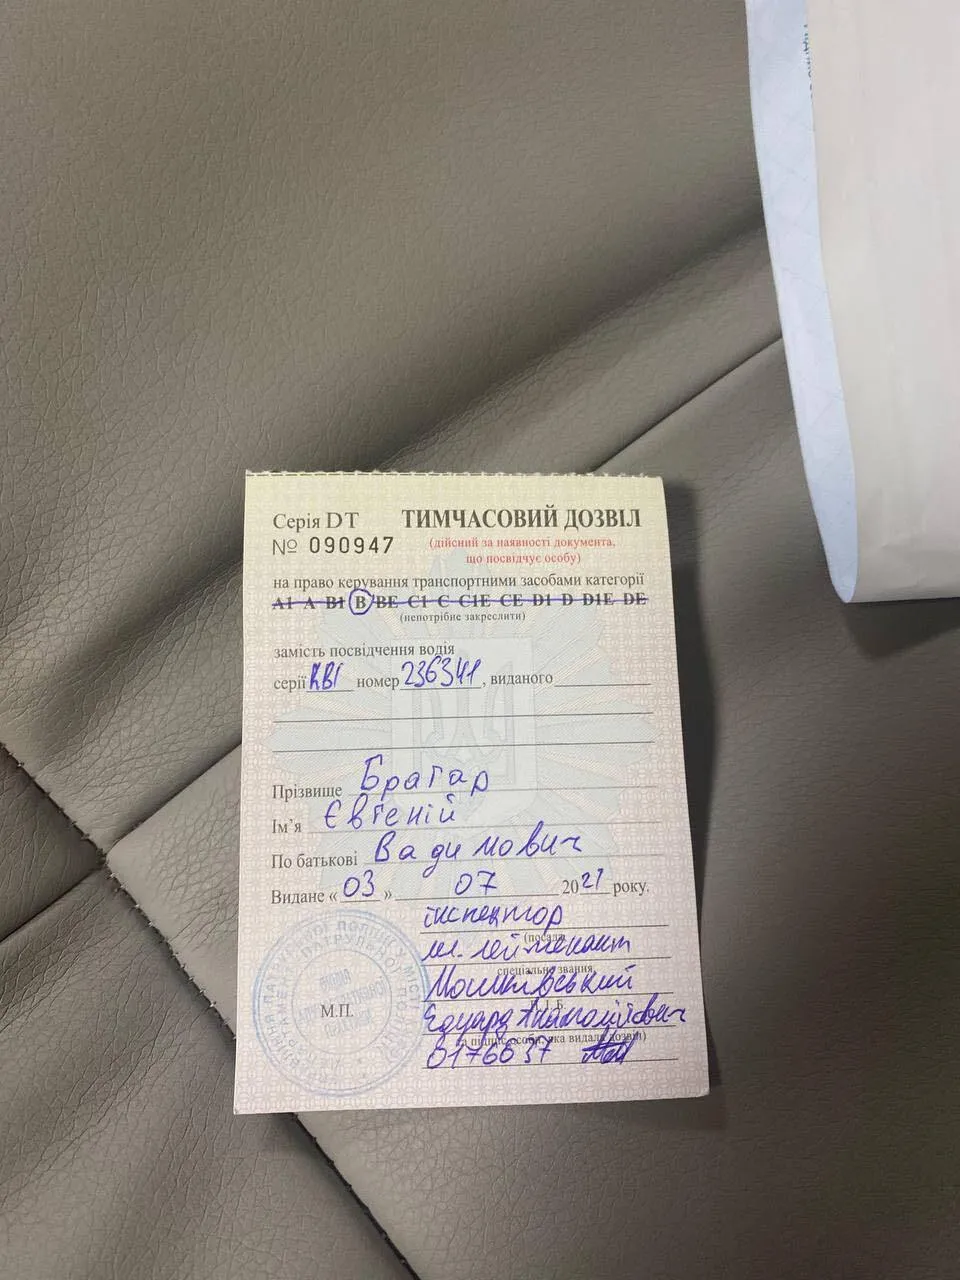 Серія DT ТИМЧАСОВИЙ ДОЗВІЛ
№ 090947 (дійсний за наявності документа,
що посвідчує особу)
на право керування транспортними засобами категорії
A1 A B1 B BE C1 C C1E CE D1 D D1E DE
(непотрібне закреслити)
замість посвідчення водія
серії номер 236341, виданого
Прізвище Брагар
Ім’я Євгеній
По батькові Вадимович
Видане « 03 » 07 2021 року.
інспектор
(посада,
лейтенант
спеціальне звання,
П.І.Б.
М.П. Едуард Анатолійович
та підпис особи, яка видала дозвіл)
0176637